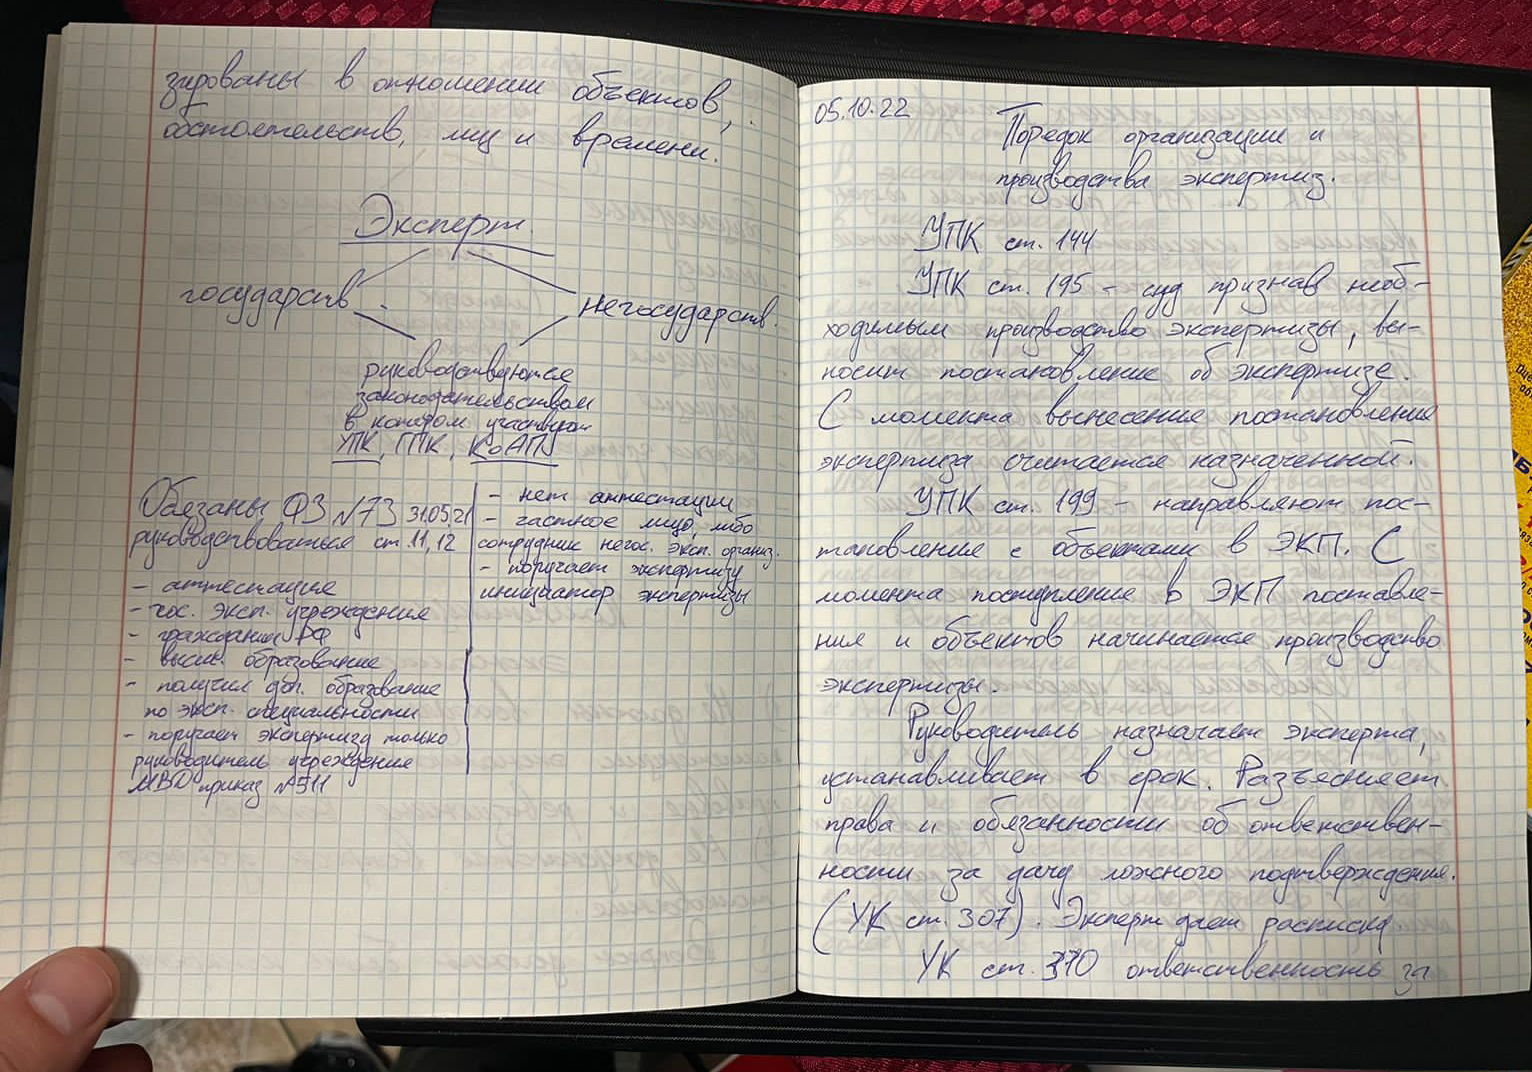 зированы в отношении объектов,
обстоятельств, лиц и времени.
Эксперт
государств.
негосударств.
руководствуются
законодательством
в котором участвуют
УПК, ГПК, КоАП
Обязаны ФЗ №73 31.05.21
руководствоваться ст. 11, 12
- аттестация
- гос. эксп. учреждения
- гражданин РФ
- высш. образование
- получил доп. образование
по эксп. специальности
- поручает экспертизу только
руководитель учреждения
МВД приказ №511
- нет аттестации
- частное лицо, либо
сотрудник негос. эксп. организ.
- поручает экспертизу
инициатор экспертизы
05.10.22
Поредок организации и
производства экспертиз.
УПК ст. 144
УПК ст. 195 - суд признав необ-
ходимым производство экспертизы, вы-
носит постановление об экспертизе.
С момента вынесения постановления
экспертиза считается назначенной.
УПК ст. 199 - направляют пос-
тановление с объектами в ЭКП. С
момента поступления в ЭКП поставле-
ния и объектов начинается производство
экспертизы.
Руководитель назначает эксперта,
устанавливает в срок. Разъесняет
права и обязанности об ответствен-
ности за дачу ложного подтверждения.
(УК ст. 307). Эксперт дает расписку
УК ст. 310 ответственность за